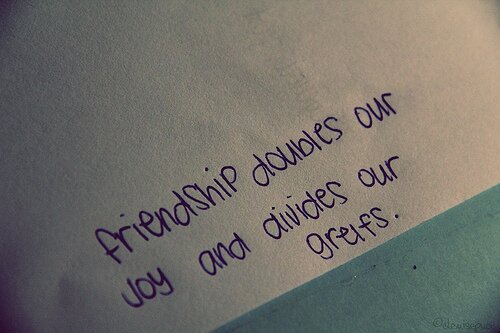 friendship doubles our
joy and divides our
greifs.